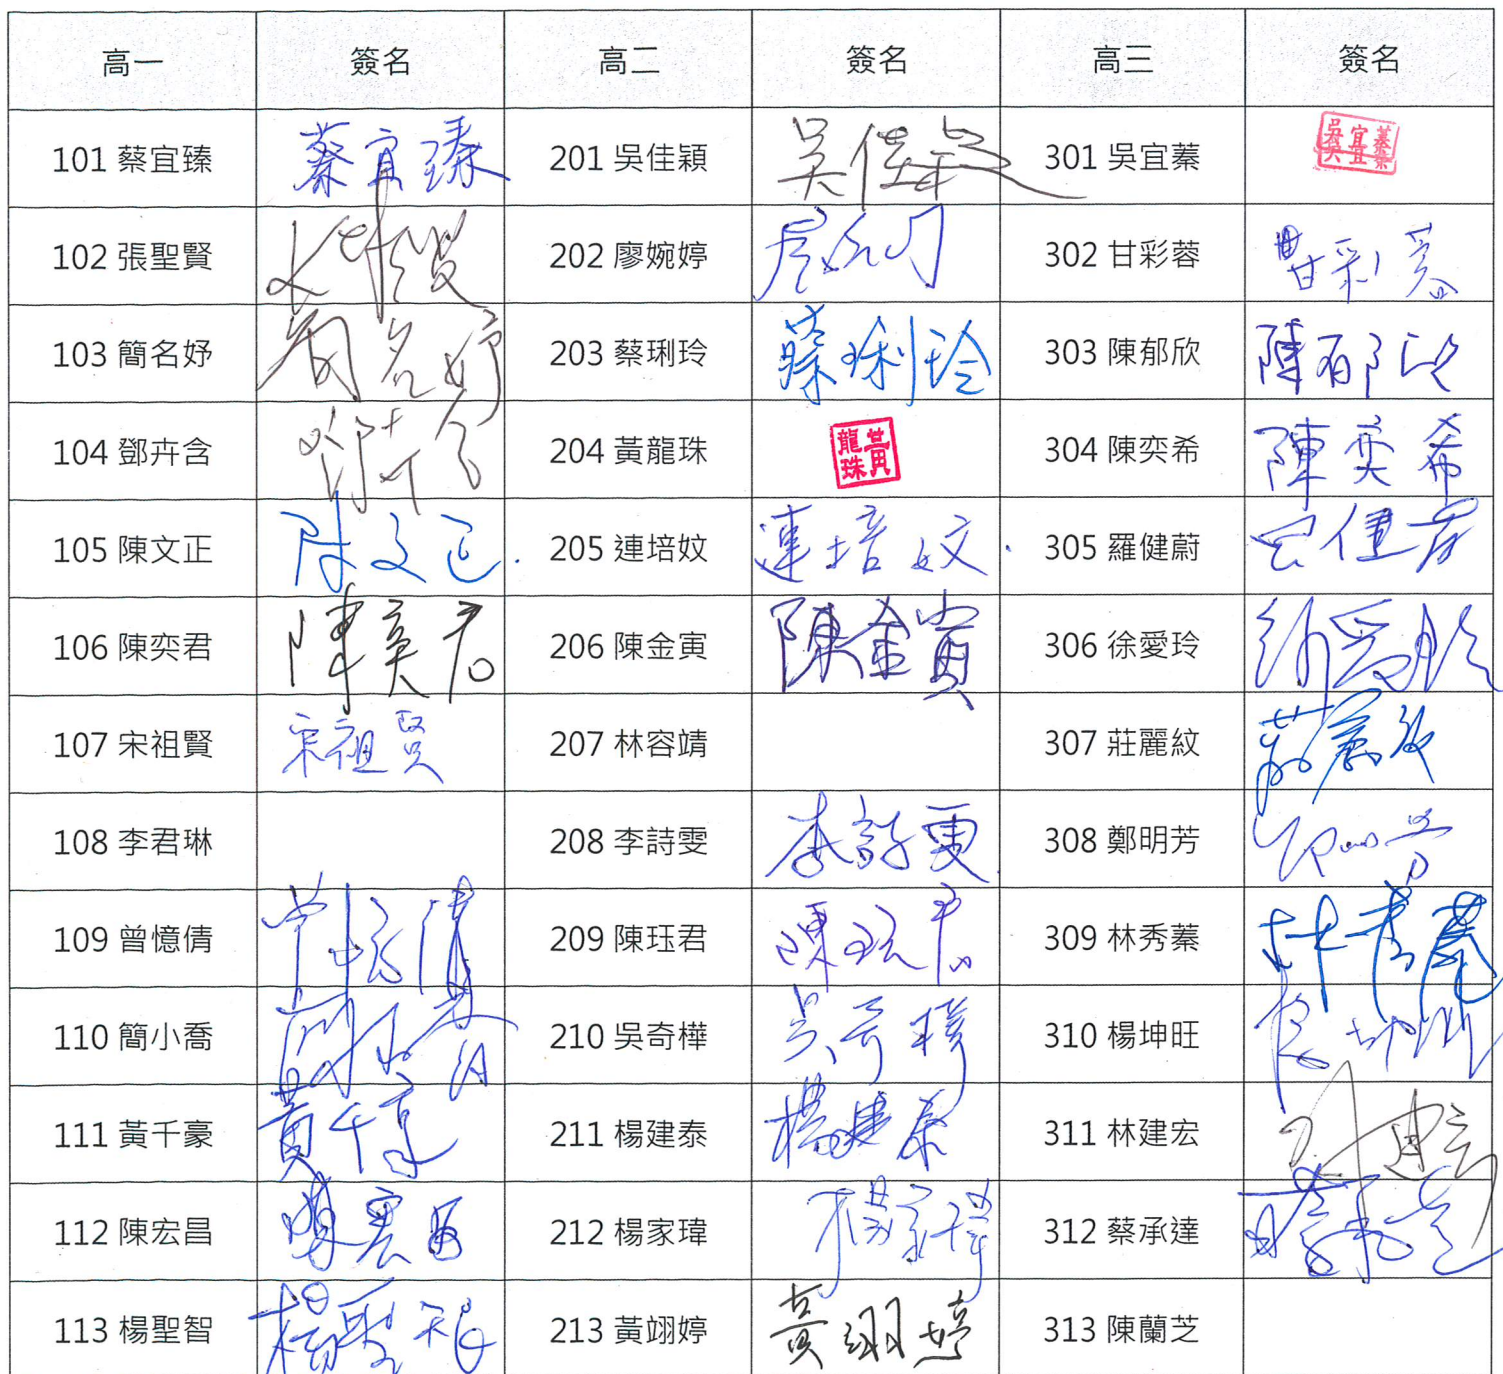 高一 簽名 高二 簽名 高三 簽名
101 蔡宜臻 蔡宜臻 201 吳佳穎 吳佳穎 301 吳宜蓁 吳宜蓁
102 張聖賢 202 廖婉婷 302 甘彩蓉 甘彩蓉
103 簡名妤 簡名妤 203 蔡琍玲 蔡琍玲 303 陳郁欣 陳郁欣
104 鄧卉含 204 黃龍珠 黃龍珠 304 陳奕希 陳奕希
105 陳文正 陳文正 205 連培妏 連培妏 305 羅健蔚
106 陳奕君 陳奕君 206 陳金寅 陳金寅 306 徐愛玲
107 宋祖賢 宋祖賢 207 林容靖 307 莊麗紋 莊麗紋
108 李君琳 208 李詩雯 李詩雯 308 鄭明芳
109 曾憶倩 209 陳珏君 陳珏君 309 林秀蓁 林秀蓁
110 簡小喬 210 吳奇樺 吳奇樺 310 楊坤旺
111 黃千豪 黃千豪 211 楊建泰 楊建泰 311 林建宏
112 陳宏昌 陳宏昌 212 楊家瑋 楊家瑋 312 蔡承達
113 楊聖智 楊聖智 213 黃翊婷 黃翊婷 313 陳蘭芝